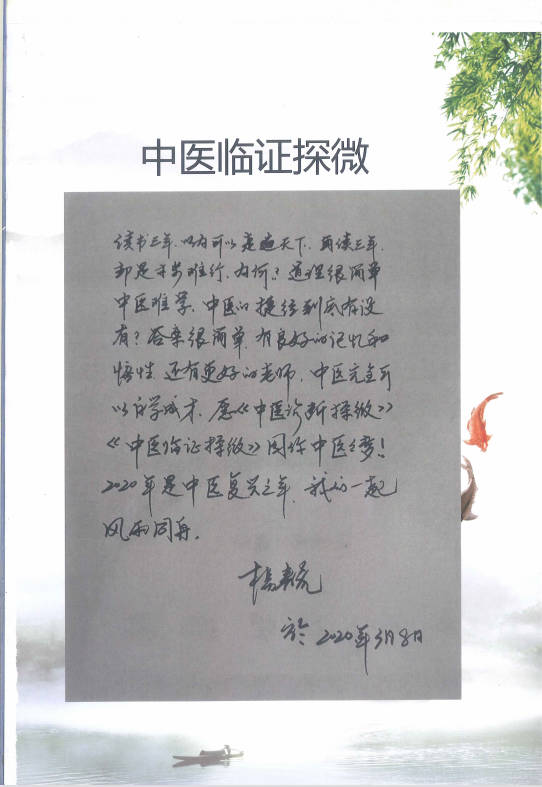 中医临证探微
读书三年，以为可以走遍天下，再读三年，
却是寸步难行，为何？道理很简单
中医难学，中医的捷径到底有没
有？答案很简单，有良好的记忆和
悟性，还有更好的老师，中医完全可
以自学成才，愿《中医诊断探微》
《中医临证探微》圆你中医之梦！
2020年是中医复兴之年，我们一起
风雨同舟。
杨
于2020年3月8日